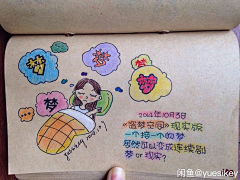 梦
梦
梦
梦
2014年10月3日
《盗梦空间》现实版
一个接一个的梦
居然可以变成连续剧
梦 or 现实?
闲鱼@yuesikey